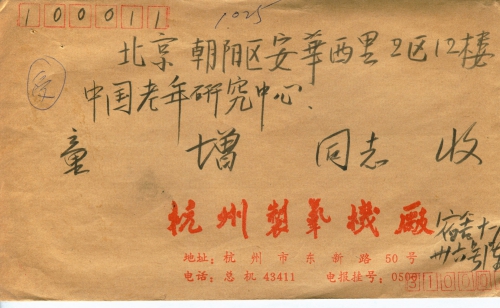 100011
1025
北京朝阳区安華西里2区12楼
中国老年研究中心.
童增同志收
杭州製氧機廠
宿舍
卅六号
地址：杭州市东新路50号
电话：总机43411 电报挂号：050
3100